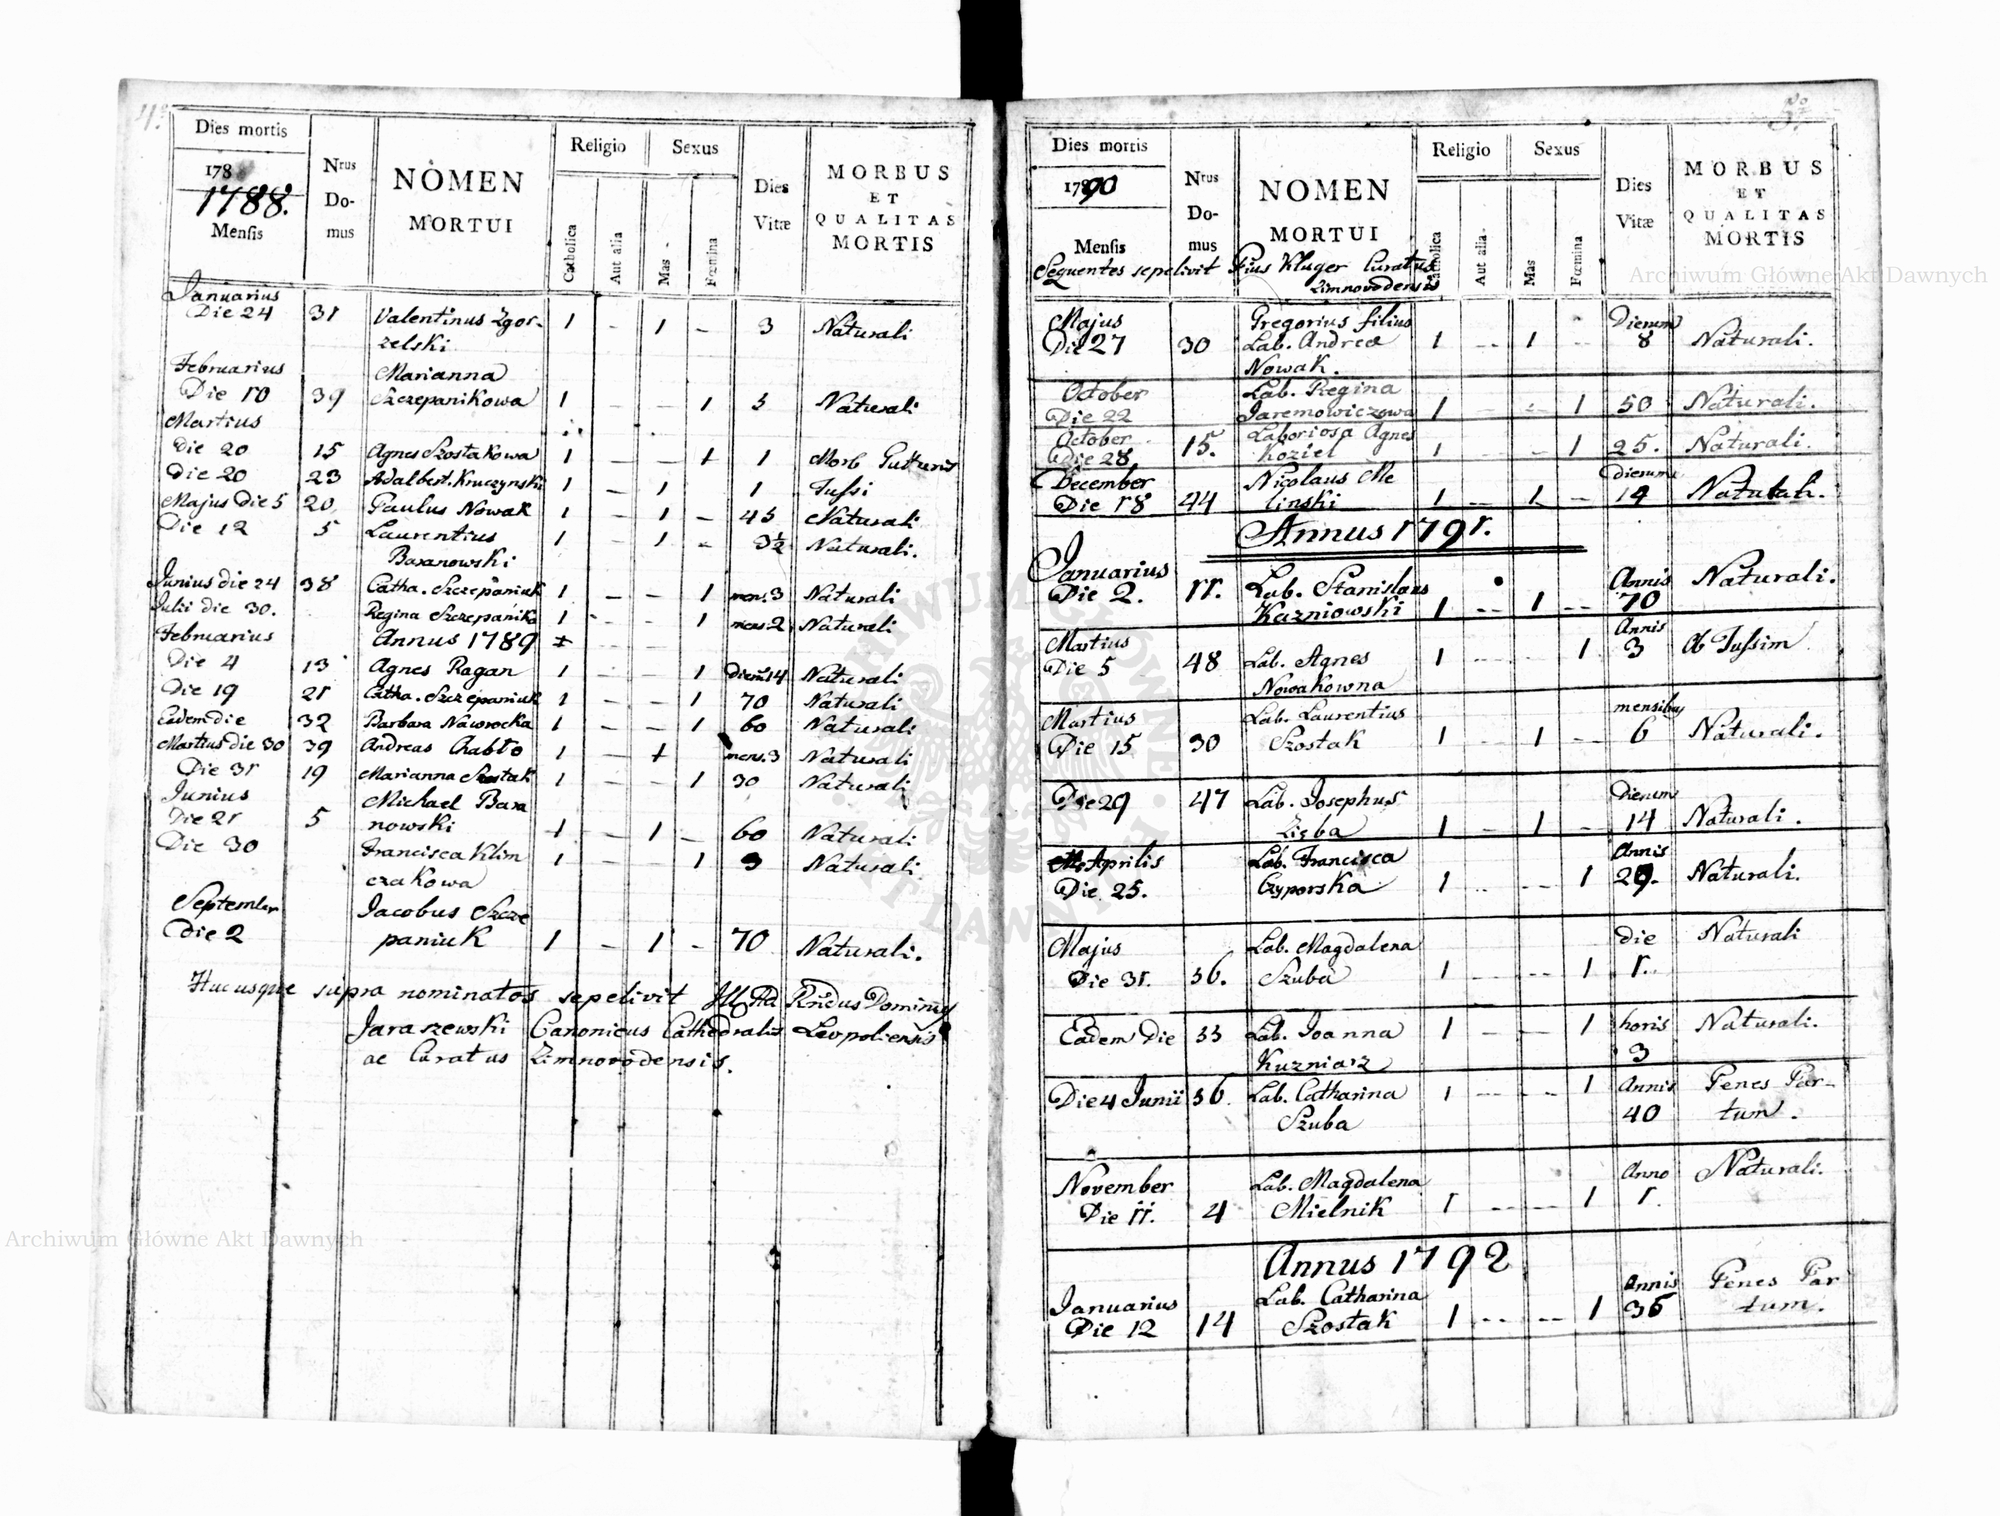 4.
Dies mortis
1788
1788.
Mensis
Nrus Do-mus
NOMEN
MORTUI
Religio
Catholica
Aut alia
Sexus
Mas
Fœmina
Dies
Vitæ
MORBUS
ET
QUALITAS
MORTIS
Januarius
Die 24 31 Valentinus Zgor- 1 - 1 - 3 Naturali
zelski
Februarius Marianna
Die 10 39 Szczepanikowa 1 - - 1 5 Naturali
Martius
Die 20 15 Agnes Szostakowa 1 - - 1 1 Morb Gutturis
Die 20 23 Adalbert. Kruczynski 1 - 1 1 Tussi
Majus Die 5 20. Paulus Nowak 1 - 1 - 45 Naturali
Die 12 5 Laurentius 1 - 1 - 3½ Naturali.
Baranowski
Junius die 24 38 Catha. Szczepaniuk 1 - - 1 mens. 3 Naturali
Julii die 30. Regina Szczepanika 1 - - 1 mens. 2 Naturali
Februarius Annus 1789
Die 4 13 Agnes Ragan 1 - - 1 14 Naturali
Die 19 21 Catha. Szczepaniuk 1 - - 1 70 Naturali
Eadem die 32 Barbara Nawrocka 1 - - 1 60 Naturali
Martius die 30 39 Andreas Chabło 1 - 1 mens. 3 Naturali
Die 31 19 Marianna Szostak 1 - - 1 30 Naturali
Junius Michael Bara
Die 21 5 nowski 1 - 1 - 60 Naturali
Die 30 Francisca Klim 1 - - 1 3 Naturali
czakowa
September Jacobus Szcze
Die 2 paniuk 1 - 1 - 70 Naturali.
Hucusque supra nominatos sepelivit Ill. Ad Rndus Dominus
Jaraszewski Canonicus Cathedralis Leopoliensis
ac Curatus Zimnovodensis.
5.
Dies mortis
1790
Mensis
Nrus Do-mus
NOMEN
MORTUI
Religio
Catholica
Aut alia
Sexus
Mas
Fœmina
Dies
Vitæ
MORBUS
ET
QUALITAS
MORTIS
Sequentes sepelivit Pius Kluger Curatus
Zimnovodensis
Majus Gregorius filius Dierum
Die 27 30 Lab. Andreæ 1 - 1 - 8 Naturali.
Nowak.
October Lab. Regina
Die 22 Jaremowiczowa 1 - - 1 50 Naturali.
October 15. Laboriosa Agnes 1 - 1 25. Naturali.
Die 28 Kozieł
December Nicolaus Me Dierum
Die 18 44 linski 1 - 1 - 14 Naturali.
Annus 1791.
Januarius Lab. Stanislaus Annis Naturali.
Die 2. 11. Kuzniowski 1 - 1 - 70
Martius Annis
Die 5 48 Lab. Agnes 1 - - 1 3 Ob Tussim
Nowakowna
Martius Lab. Laurentius mensibus
Die 15 30 Szostak 1 - 1 - 6 Naturali.
Die 29 47 Lab. Josephus Dierum
Zięba 1 - 1 - 14 Naturali.
Aprilis Lab. Francisca Annis
Die 25. Czyporska 1 - - 1 29. Naturali.
Majus Lab. Magdalena die Naturali
Die 31. 36. Szuba 1 - - 1 1.
Eadem Die 33 Lab. Joanna 1 - - 1 horis Naturali.
Kuzniarz 3
Die 4 Junii 36. Lab. Catharina 1 - - 1 Annis Penes Par-
Szuba 40 tum.
November Lab. Magdalena Anno Naturali.
Die 11. 4 Mielnik 1 - - 1 1.
Annus 1792
Januarius Lab. Catharina Annis Penes Par
Die 12 14 Szostak 1 - - 1 36 tum.
Archiwum Główne Akt Dawnych
Archiwum Główne Akt Dawnych
ARCHIWUM GŁÓWNE AKT DAWNYCH